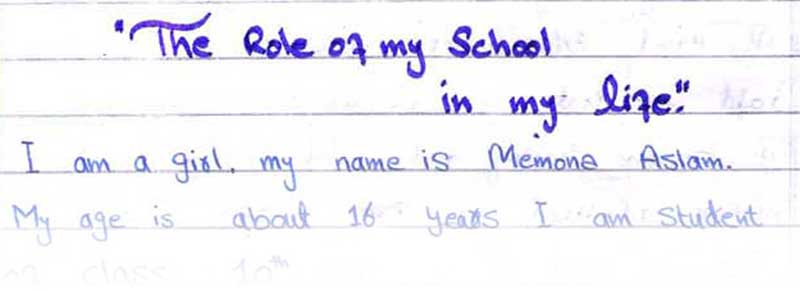 "The Role of my School
in my life."
I am a girl. my name is Memona Aslam.
My age is about 16 years I am student
of class 10th